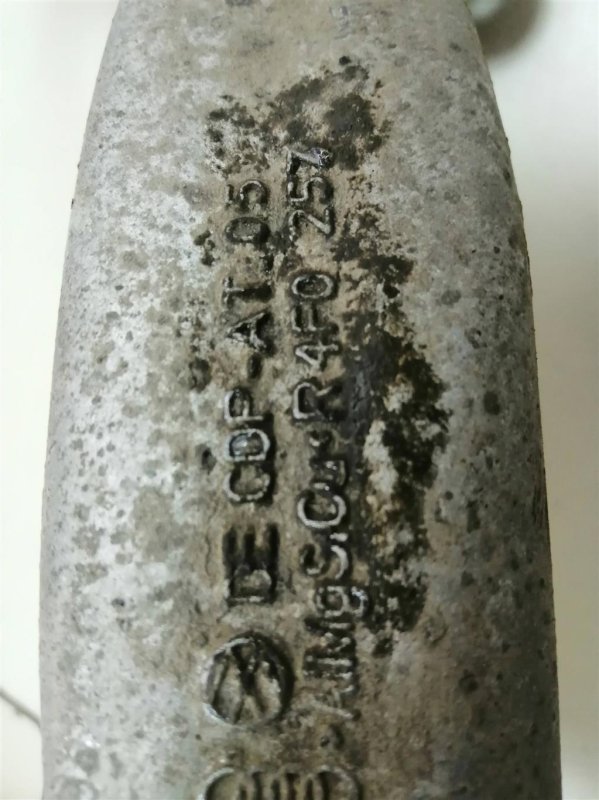 DE CDP-AT 05
AlMgSiCu·R 4F0 25Z